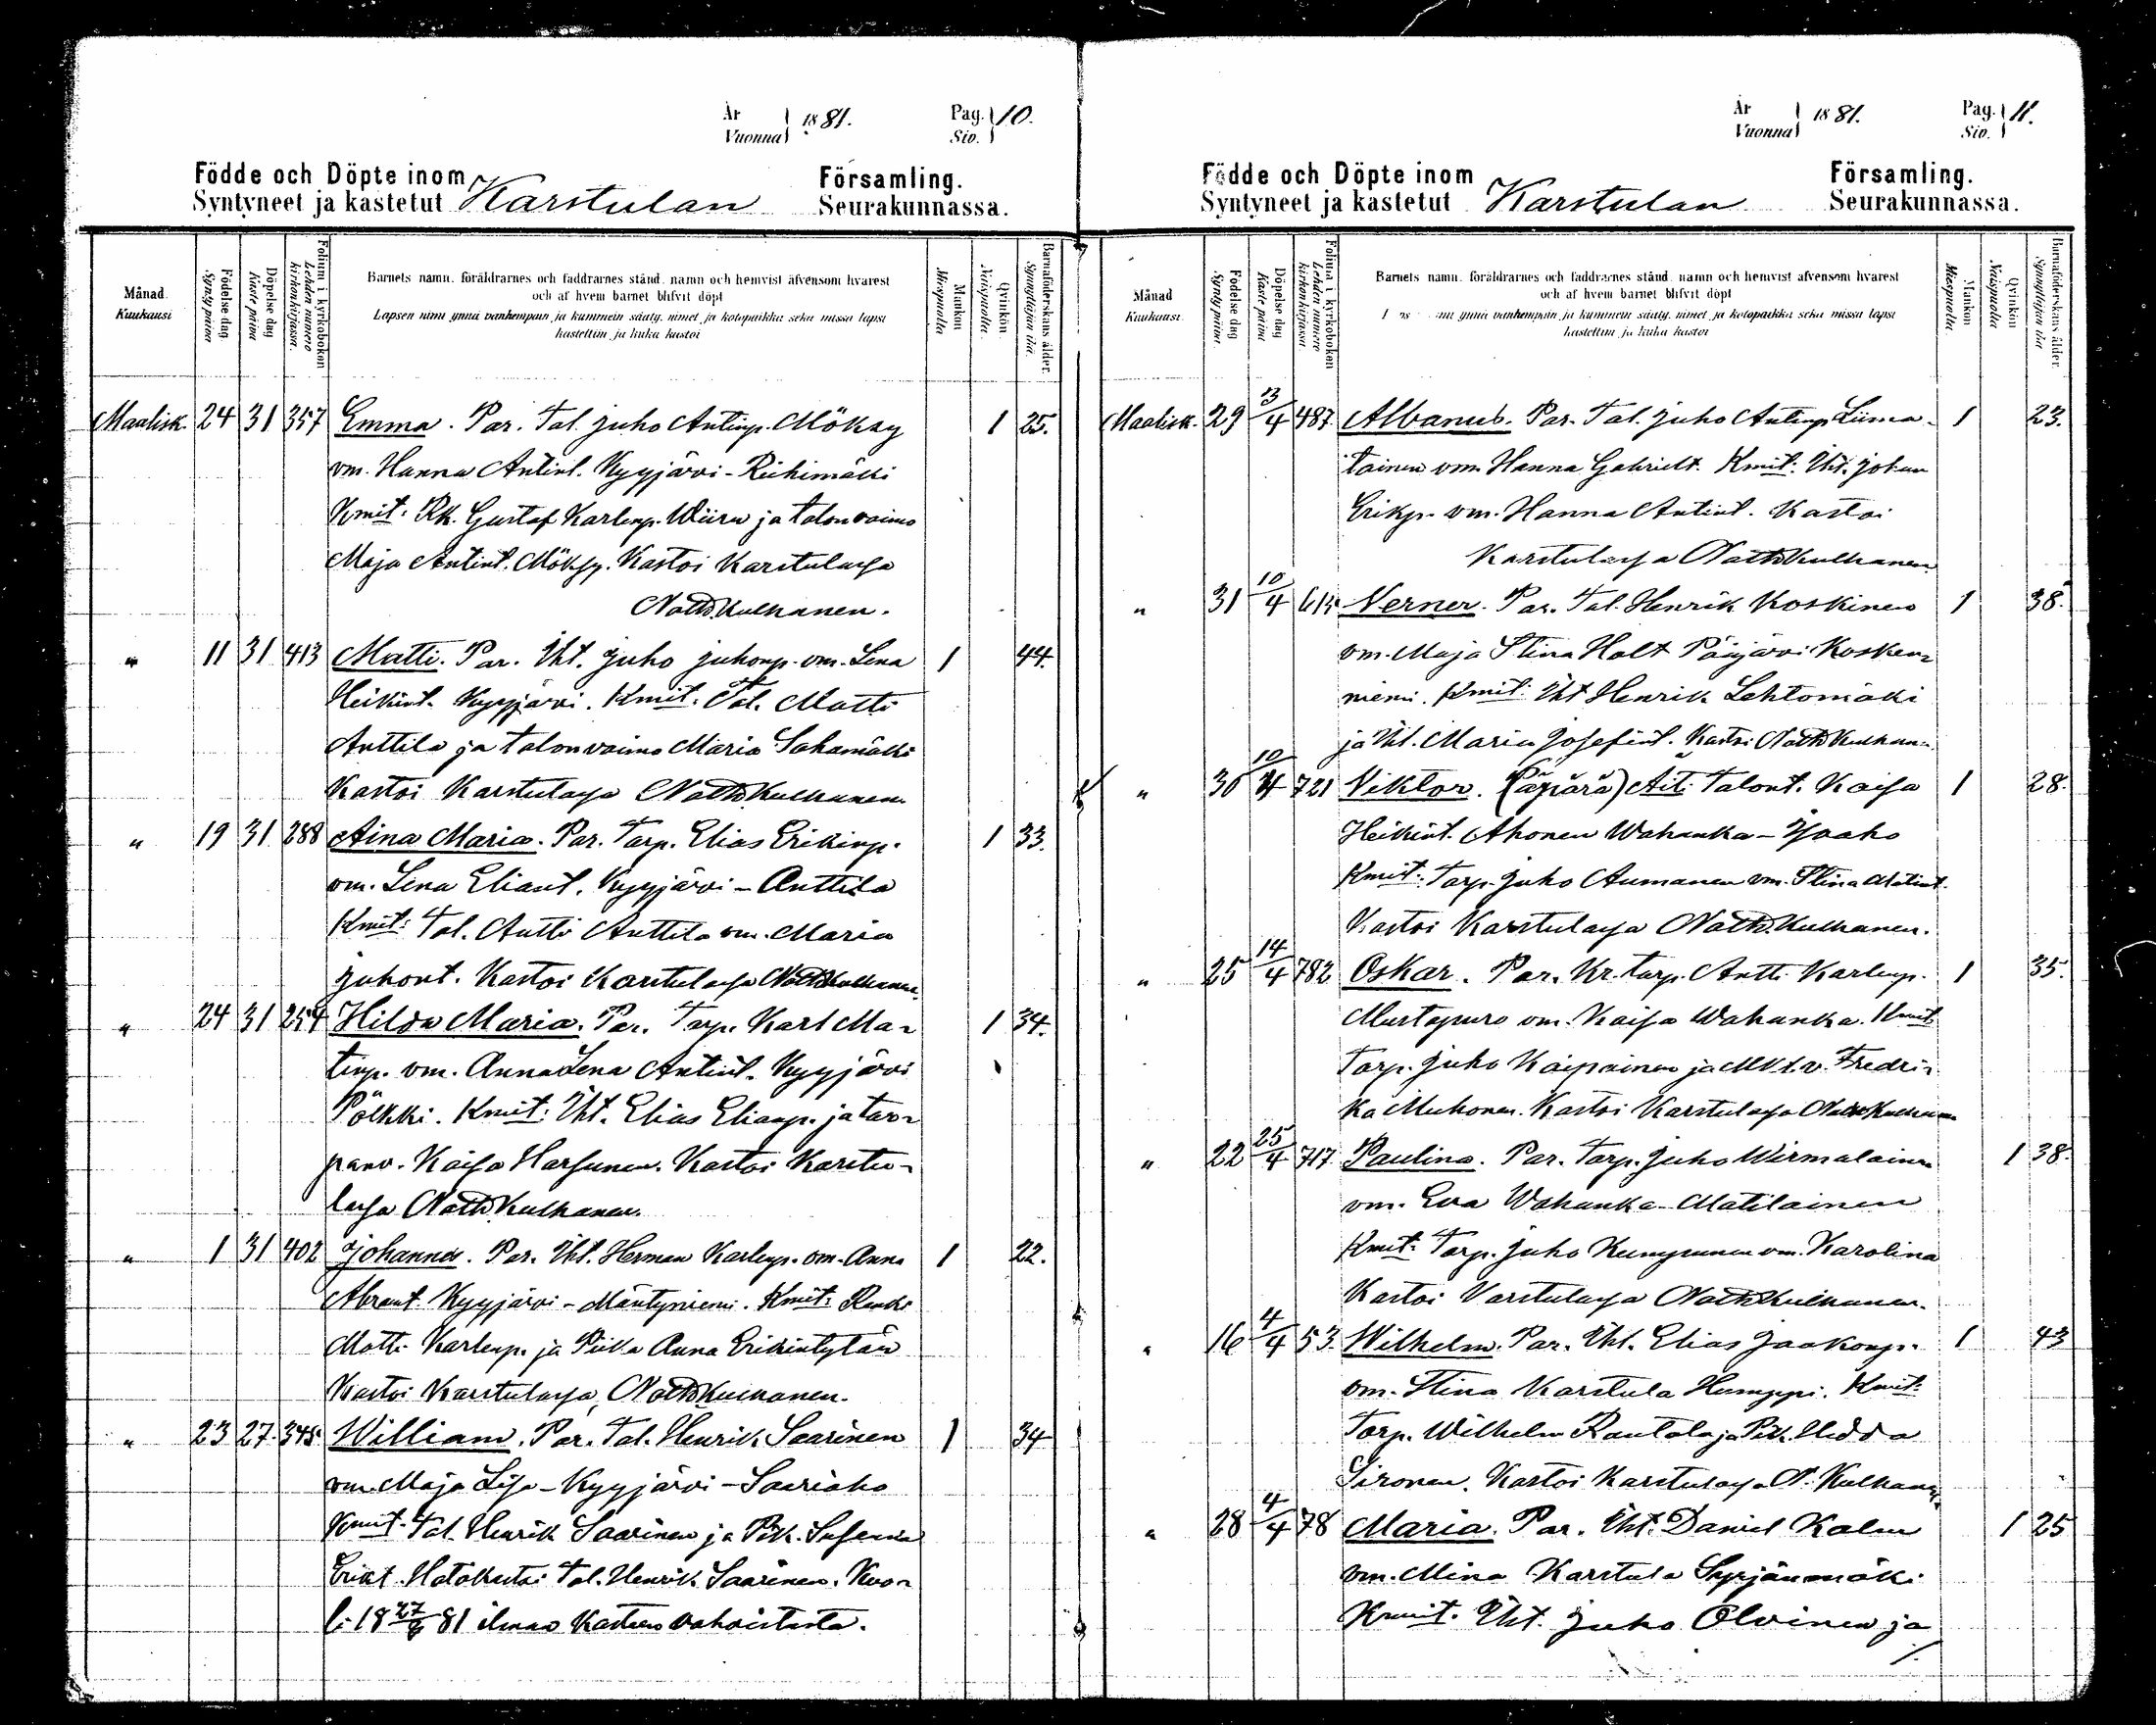 År
Vuonna 1881.
Pag.
Siv. 10.
Födde och Döpte inom
Syntyneet ja kastetut Karstulan
Församling.
Seurakunnassa.
Månad
Kuukausi
Födelse dag
Synty päivä
Döpelse dag
Kaste päivä
Folium i kyrkoboken
Lehden numero kirkonkirjassa.
Barnets namn, föräldrarnes och faddrarnes stånd, namn och hemvist äfvensom hvarest
och af hvem barnet blifvit döpt
Lapsen nimi ynnä vanhempain ja kummein sääty, nimet ja kotopaikka sekä missä lapsi
kastettiin ja kuka kastoi
Mankön
Miespuolia.
Qvinkön
Naispuolia.
Barnaföderskans ålder.
Synnyttäjän ikä.
Maalisk. 24 31 357 Emma. Par. Tal. Juho Antinp. Möksy 1 25.
vm. Hanna Antint. Kyyjärvi-Riihimäki
Kmit: Rk. Gustaf Karlenp. Wiiru ja talonvaimo
Maja Antint. Möksy. Kastoi Karstulassa
Nath. Kulhanen.
" 11 31 413 Matti. Par. Iht. Juho Juhonp. vm. Lena 1 44.
Heikint. Kyyjärvi. Kmit. Tal. Matti
Anttila ja talonvaimo Maria Sahamäki
Kastoi Karstulassa Nath Kulhanen.
" 19 31 288 Aina Maria. Par. Torp. Elias Erikinp. 1 33.
vm. Lena Eliant. Kyyjärvi-Anttila
Kmit: Tal. Antti Anttila vm. Maria
Juhont. Kastoi Karstulassa Nath Kulhanen.
" 24 31 254 Hilda Maria. Par. Torp. Karl Ma-
1 34.
tinp. vm. Anna Lena Antint. Kyyjärvi
Pölkki. Kmit: Iht. Elias Elianp. ja tor-
panv. Kaisa Harjunen. Kastoi Karstu-
lassa Nath Kulhanen.
" 1 31 402 Johannes. Par. Iht. Herman Karlenp. vm. Anna 1 22.
Abramt. Kyyjärvi-Mäntyniemi. Kmit: Renki
Matti Karlenp. ja Piika Anna Erikintytär
Kastoi Karstulassa, Nath Kulhanen.
" 23 27. 345 William. Par. Tal. Henrik Saarinen 1 34
vm. Maja Lisa-Kyyjärvi-Saariaho
Kmit. Tal. Henrik Saarinen ja Pk. Susanna
Erikt. Hätäkastoi Tal. Henrik Saarinen. Kuo-
li 18 27/ 81 ilman kasteen vahvistusta.
År
Vuonna 1881.
Pag.
Siv. 11.
Födde och Döpte inom
Syntyneet ja kastetut Karstulan
Församling.
Seurakunnassa.
Månad
Kuukausi
Födelse dag
Synty päivä.
Döpelse dag
Kaste päivä
Folium i kyrkoboken
Lehden numero kirkonkirjassa.
Barnets namn, föräldrarnes och faddrarnes stånd, namn och hemvist äfvensom hvarest
och af hvem barnet blifvit döpt
ynnä vanhempain ja kummein sääty, nimet ja kotopaikka sekä missä lapsi
kastettiin ja kuka kastoi
Mankön
Miespuolia.
Qvinkön
Naispuolia
Barnaföderskans ålder.
Synnyttäjän ikä
Maalisk. 29 3/4 487 Albanus. Par. Tal. Juho Antinp. Liima- 1 23.
tainen vm. Hanna Gabrielt. Kmit: Iht. Johan
Erikp. vm. Hanna Antint. Kastoi
Karstulassa Nath Kulhanen
" 31 10/4 615 Verner. Par. Tal. Henrik Koskinen 1 38.
vm. Maja Stina Holt Pääjärvi Kosken-
niemi. Kmit: Iht Henrik Lehtomäki
ja Iht. Maria Josefint. Kastoi Nath Kulhanen.
" 30 10/4 721 Viktor. (Äpärä) Äiti: Talont. Kaisa 1 28.
Heikint. Ahonen Wahanka-Ijaaho
Kmit: Torp. Juho Aumanen vm. Stina Matint.
Kastoi Karstulassa Nath. Kulhanen.
" 25 14/4 782 Oskar. Par. Kr. torp. Antti Karlenp. 1 35.
Mustapuro vm. Kaisa Wahanka. Kmit:
Torp. Juho Kaipainen ja Mkt.v. Fredri-
ka Muhonen. Kastoi Karstulassa Nath Kulhanen
" 22 25/4 717 Paulina. Par. Torp. Juho Wirmalainen 1 38.
vm. Eva Wahanka-Matilainen
Kmit: Torp. Juho Kumpunen vm. Karolina
Kastoi Karstulassa Nath Kulhanen.
" 16 4/4 53. Wilhelm. Par. Iht. Elias Jaakonp. 1 43
vm. Stina Karstula Humppi. Kmit:
Torp. Wilhelm Rautala ja Pik. Hedda
Sironen. Kastoi Karstulassa N. Kulhanen.
" 28 4/4 78 Maria. Par. Iht. Daniel Kalm 1 25
vm. Mina Karstula Syrjänmäki
Kmit. Iht. Juho Olvinen ja